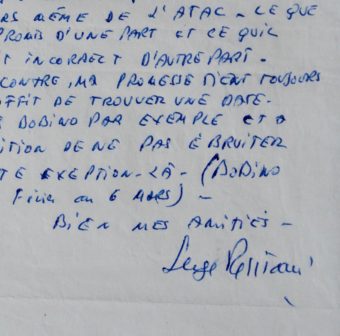 RS MÊME DE L'ATAC - CE QUE
PROMIS D'UNE PART ET CE QU'IL
T INCORRECT D'AUTRE PART.
CONTRE, MA PROMESSE TIENT TOUJOURS
UFFIT DE TROUVER UNE DATE.
S BOBINO PAR EXEMPLE ET A
ITION DE NE PAS ÉBRUITER
TE EXEPTION-LÀ - (BOBINO
FINI AU 6 MARS) -
BIEN MES AMITIÉS -
Serge Reggiani